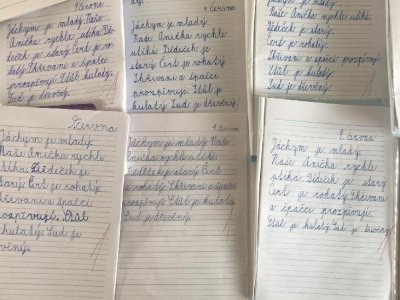 9. června
Jáchym je mladý. Naše
Anička rychle utíká. Dě-
deček je starý. Čert je ro-
hatý. Skřivani a špačci
prozpěvují. Stůl kulatý.
Sud je dřevěný.
9. června
Jáchym je mladý.
Naše Anička rychle
utíká. Dědeček je
starý. Čert je rohatý.
Skřivani a špačci
prozpěvují. Stůl je
kulatý. Sud je dřevěný.
Jáchym je mladý.
Naše Anička rychle utíká.
Dědeček je starý.
Čert je rohatý.
Skřivani a špačci prozpěvují.
Stůl je kulatý
Sud je dřevěný.
9. června
Jáchym je mladý.
Naše Anička rychle
utíká. Dědeček je
starý. Čert je rohatý.
Skřivani a špačci
prozpěvují. Stůl
kulatý. Sud je
dřevěný.
9. června
Jáchym je mladý. Naše
Anička rychle utíká.
Dědeček je starý. Čert
je rohatý. Skřivani a špačci
prozpěvují. Stůl je kulatý.
Sud je dřevěný.
9. června
Jáchym je mladý.
Naše Anička rychle
utíká. Dědeček je starý.
Čert je rohatý. Skřivani
a špačci prozpěvují.
Stůl je kulatý. Sud je dřevěný.